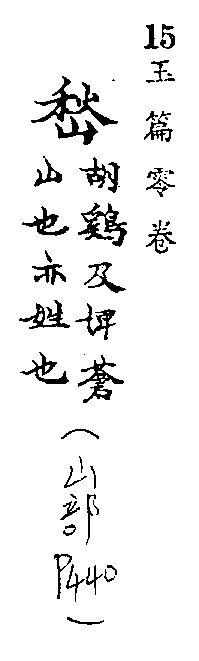 15玉篇零卷
嵆
胡鷄及埤蒼
山也亦姓也
（山部P440）